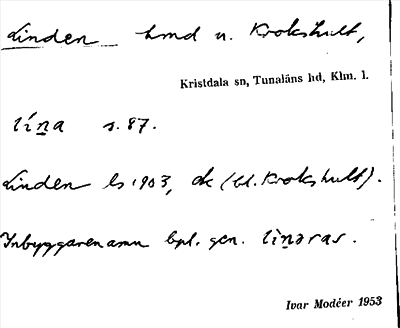 Linden hmd u. Krokshult,
Kristdala sn, Tunaläns hd, Klm. l.
lína s. 87.
Linden ls 1903, ek (bl. Krokshult).
Inbyggarenamn bpl. gen. lìnaras.
Ivar Modéer 1953